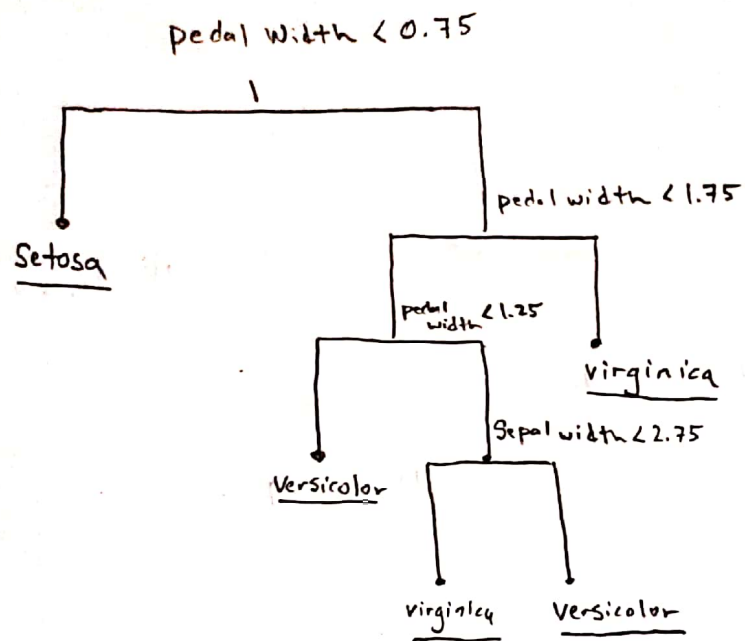 pedal width < 0.75
pedal width < 1.75
Setosa
pedal
width < 1.25
virginica
Sepal width < 2.75
Versicolor
virginica
Versicolor